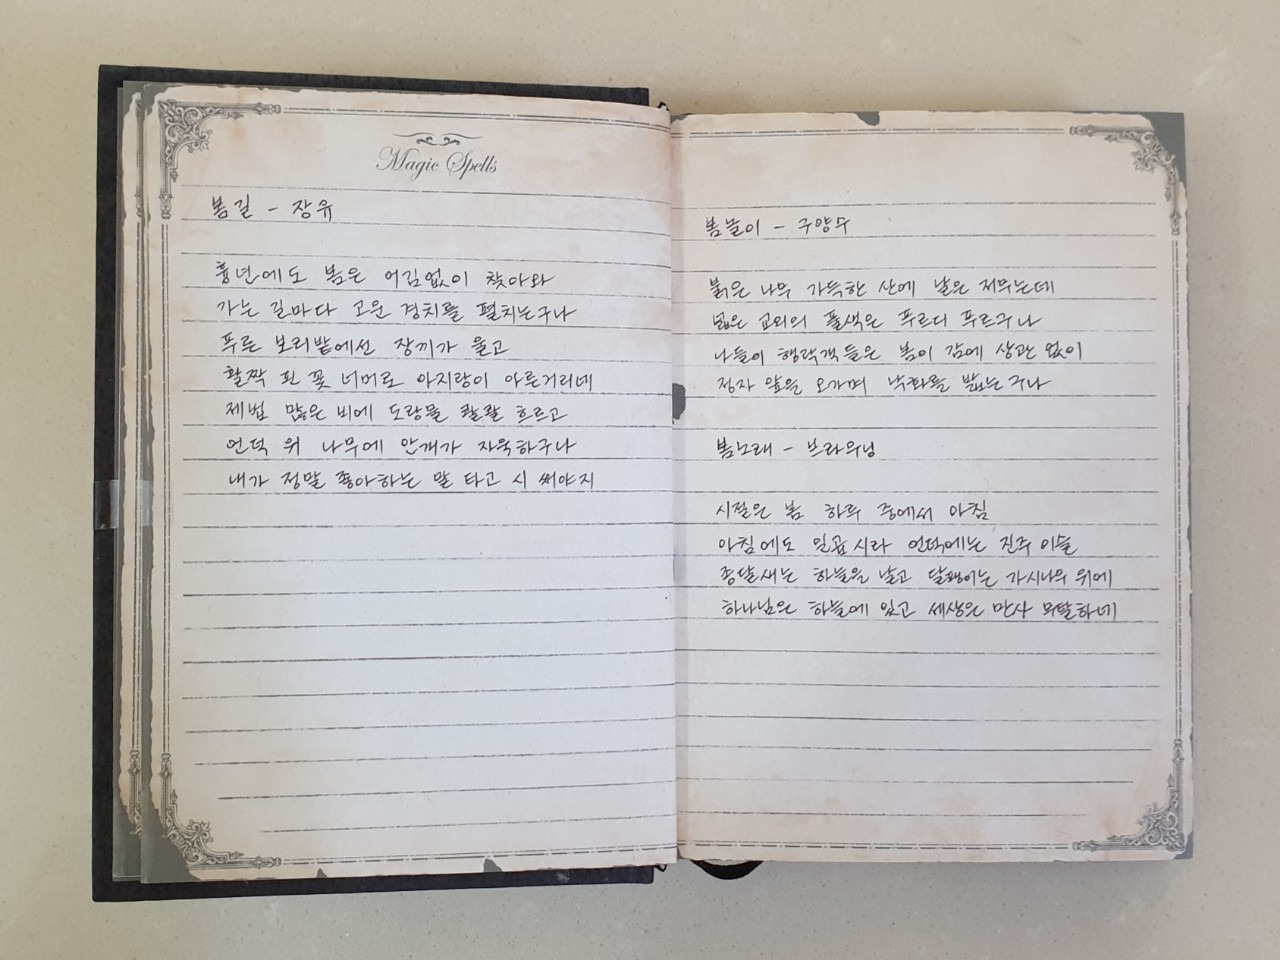 Magic Spells
봄길 - 장유
흉년에도 봄은 어김없이 찾아와
가는 길마다 고운 경치를 펼치는구나
푸른 보리밭에선 장끼가 울고
활짝 핀 꽃 너머로 아지랑이 아른거리네
제법 많은 비에 도랑물 콸콸 흐르고
언덕 위 나무에 안개가 자욱하구나
내가 정말 좋아하는 말 타고 시 써야지
봄놀이 - 구양수
붉은 나무 가득한 산에 날은 저무는데
넓은 교외의 풀색은 푸르디 푸르구나
나들이 행락객들은 봄이 감에 상관 없이
정자 앞을 오가며 낙화를 밟는구나
봄노래 - 브라우닝
시절은 봄 하루 중에서 아침
아침에도 일곱시라 언덕에는 진주 이슬
종달새는 하늘을 날고 달팽이는 가시나무 위에
하나님은 하늘에 있고 세상은 만사 무탈하네